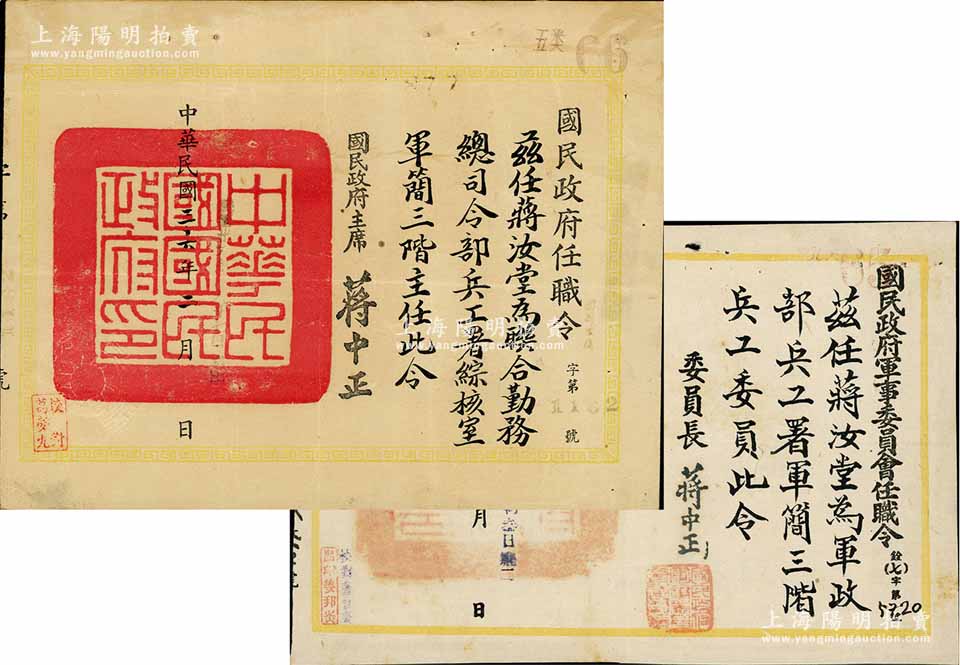 上海陽明拍賣
www.yangmingauction.com
66
國民政府任職令
字第
號
茲任蔣汝堂為聯合勤務
總司令部兵工署綜核室
軍簡三階主任此令
國民政府主席 蔣中正
中華民國三十六年二月 日
中華民
國國民
政府印
校對
上海陽明拍賣
國民政府軍事委員會任職令
銓(七)字第5720
茲任蔣汝堂為軍政
部兵工署軍簡三階
兵工委員此令
委員長 蔣中正
月 日
上海陽明拍賣
www.yangmingauction.com